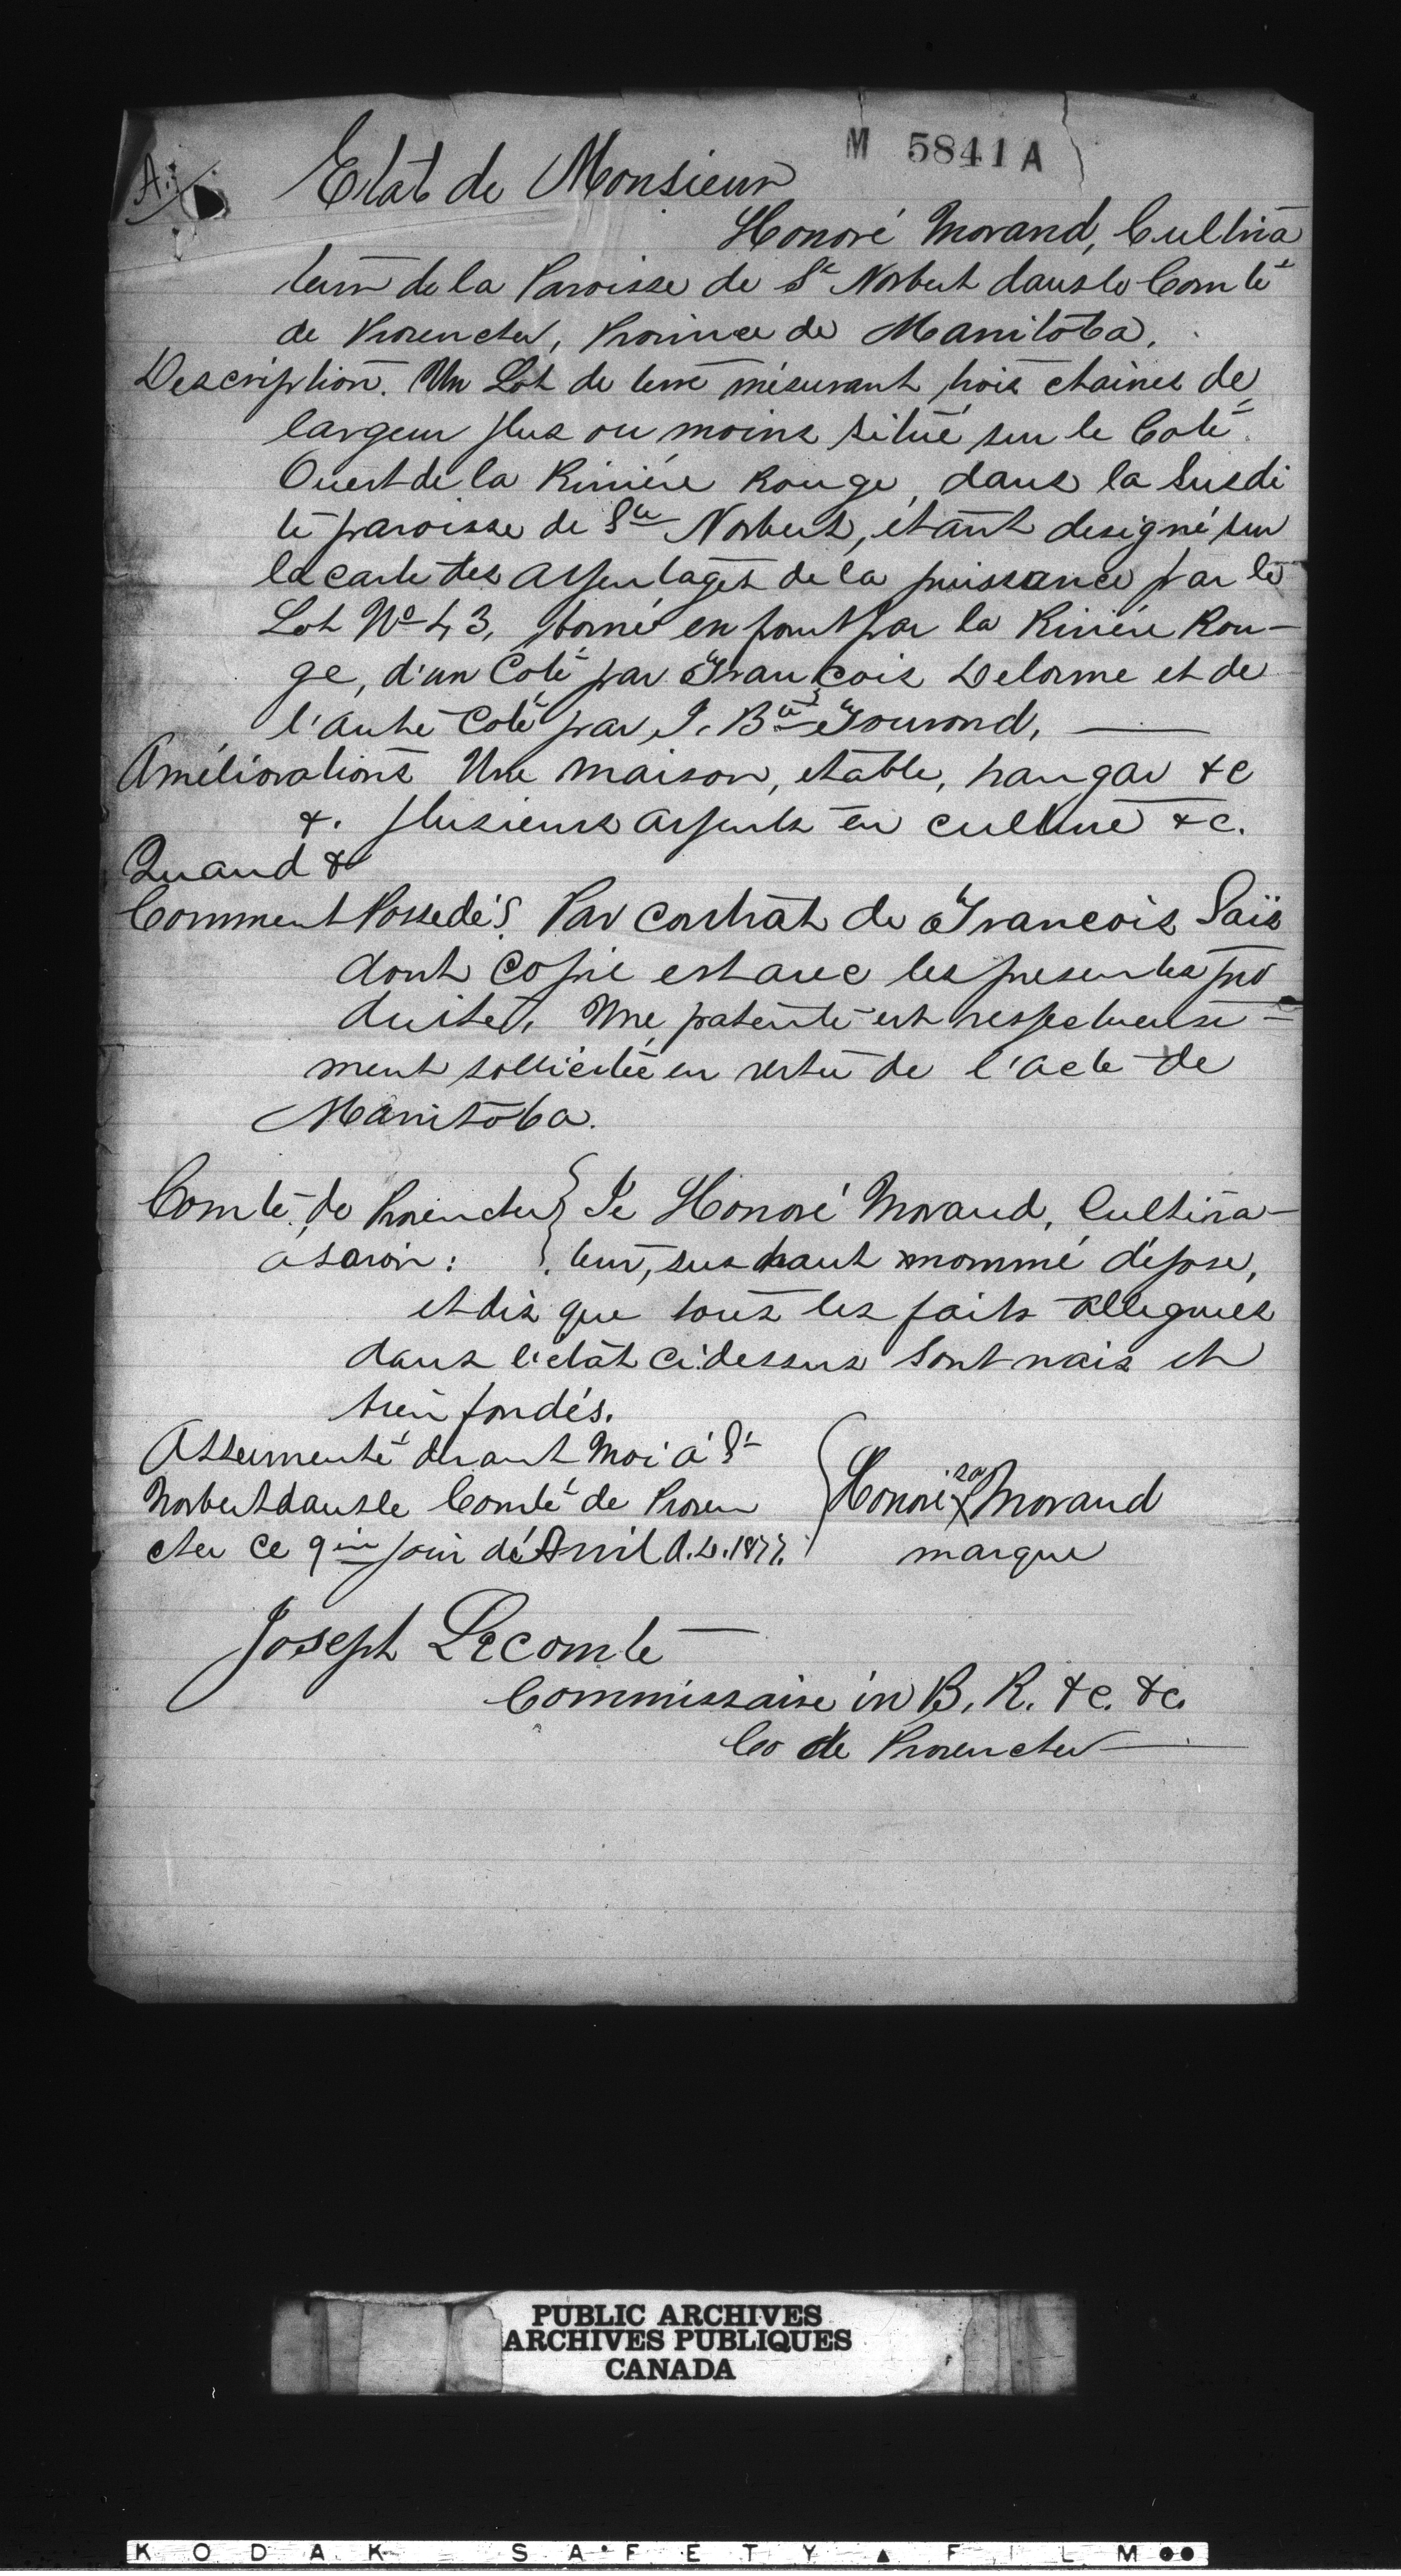 M 5841 A
A.
Etat de Monsieur
Honoré Morand, Cultiva
teur de la Paroisse de St Norbert dans le Comté
de Provencher, Province de Manitoba.
Description. Un Lot de terre mésurant trois chaines de
largeur plus ou moins situé sur le Coté
Ouest de la Rivière Rouge, dans la Susdi
te paroisse de St Norbert, étant designé sur
la carte des Arpentages de la puissance par le
Lot No 43, borné en front par la Rivière Rou-
ge, d'un Coté par François Delorme et de
l'autre Coté par J. Bte Tourond,
Améliorations Une maison, etable, hangar &c
&. plusieurs arpents en culture &c.
Quand &
Comment Possedé? Par contrat de François Saïs
dont Copie est avec les presentes pro
duites. Une patente est respectueuse-
ment sollicitée en vertu de l'acte de
Manitoba.
Comté de Provencher } Je Honoré Morand, Cultiva-
a savoir: } teur, sus haut nommé dépose,
et dis que tous les faits allegués
dans l'etat ci dessus sont vrais et
bien fondés.
Assermenté devant Moi à St
Norbert dans le Comté de Proven
cher ce 9ème jour de Avril A.D. 1877.
Honoré sa X Morand
marque
Joseph Lecomte
Commissaire in B. R. &c. &c.
Co de Provencher
PUBLIC ARCHIVES
ARCHIVES PUBLIQUES
CANADA
KODAK SAFETY FILM